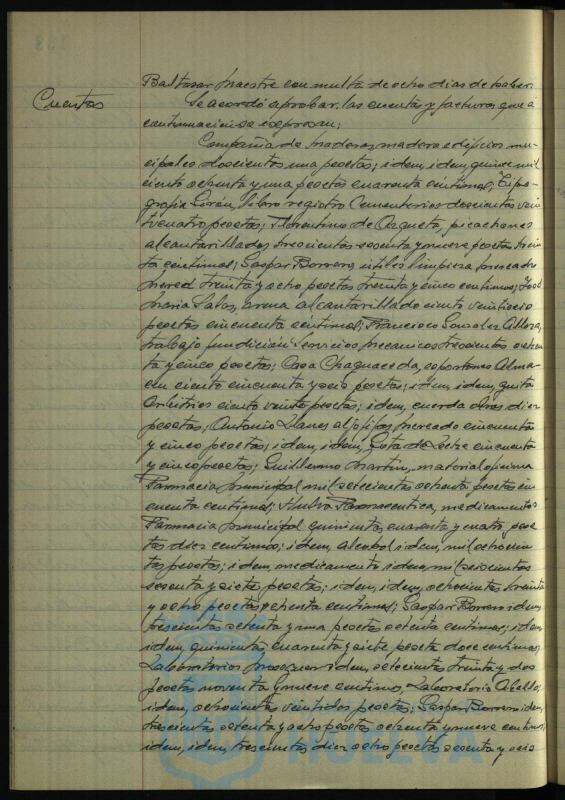 Baltasar Maestre con multa de ocho dias de haber.
Cuentas
Se acordó aprobar las cuentas y facturas que a
continuación se expresan:
Compañia de Maderas, madera edificios mu-
nicipales doscientas una pesetas; idem, idem, quince mil
ciento ochenta y una pesetas cuarenta céntimos; Tipo-
grafia Girón, libro registro Cementerios doscientas vein
ticuatro pesetas; Florentino de Azqueta, picachones
alcantarillados trescientas sesenta y nueve pesetas trein
ta centimos; Gaspar Borrero, utiles limpieza Mercado
Merced treinta y ocho pesetas treinta y cinco centimos; José
Maria Salas, arena alcantarillado ciento veintiseis
pesetas cincuenta céntimos; Francisco Gonzalez Allera,
trabajo fundición Servicios Mecanicos trescientas ochen
ta y cinco pesetas; Casa Chaguaceda, esportones Alma-
cen ciento cincuenta y seis pesetas; idem, idem, guita
Arbitrios ciento veinte pesetas; idem, cuerda obras diez
pesetas; Antonio Llanes aljofifas Mercado cincuenta
y cinco pesetas; idem, idem, Gota de Leche cincuenta
y cinco pesetas; Guillermo Martin, material oficina
Farmacia Municipal mil setecientas ochenta pesetas cin
cuenta centimos; Huelva Farmaceutica, medicamentos
Farmacia Municipal quinientas cuarenta y cuatro pese
tas diez centimos; idem, alcohol idem, mil ochocien
tas pesetas; idem, medicamento idem, mil seiscientas
sesenta y siete pesetas; idem, idem, ochocientas treinta
y ocho pesetas ochenta centimos; Gaspar Borrero idem,
trescientas setenta y una pesetas setenta centimos; idem
idem, quinientas cuarenta y siete pesetas doce centimos;
Laboratorios idem, setecientas treinta y dos
pesetas noventa y nueve centimos; Laboratorio Abelló,
idem, ochocientas veintidos pesetas; Gaspar Borrero idem,
trescientas setenta y ocho pesetas ochenta y nueve centimos;
idem, idem, trescientas diez ocho pesetas sesenta y seis
HUELVA